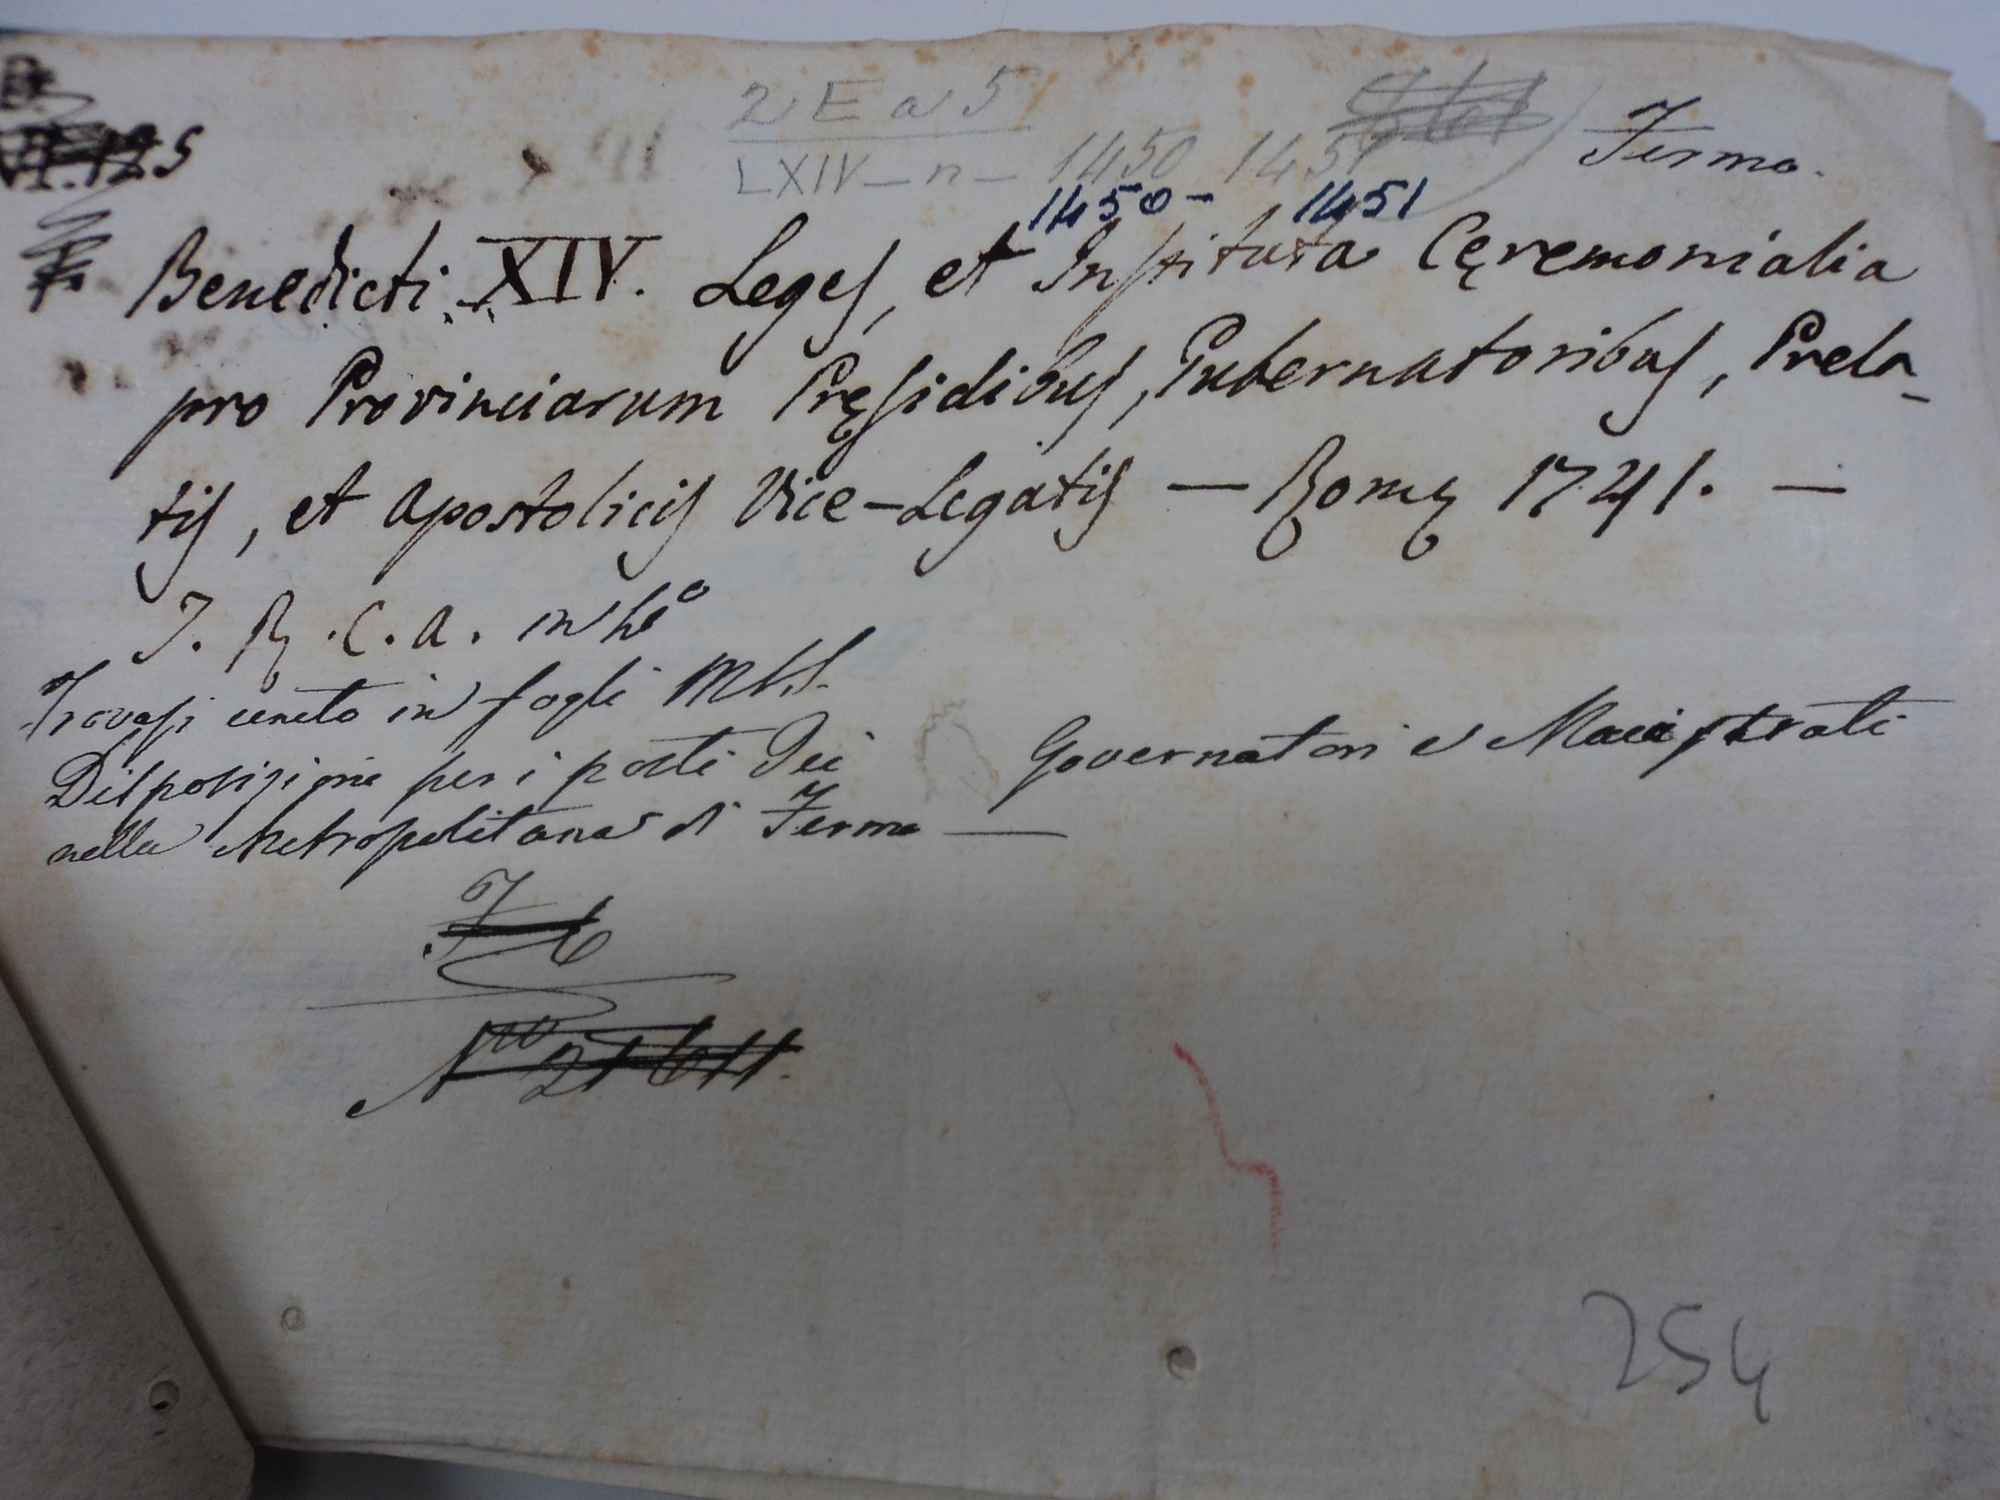 2 E a 5
LXIV - n - 1450 1451
Fermo.
125
1450 - 1451
Benedicti XIV. Leges, et Instituta Cęremonialia
pro Provinciarum Pręsidibus, Gubernatoribus, Prela-
tis, et Apostolicis Vice-Legatis — Romę 1741. —
T. R. C. A. in
Trovasi unito in fogli MSS.
Disposizione per i posti dei Governatori e Macistrati
nella Metropolitana di Fermo —
254